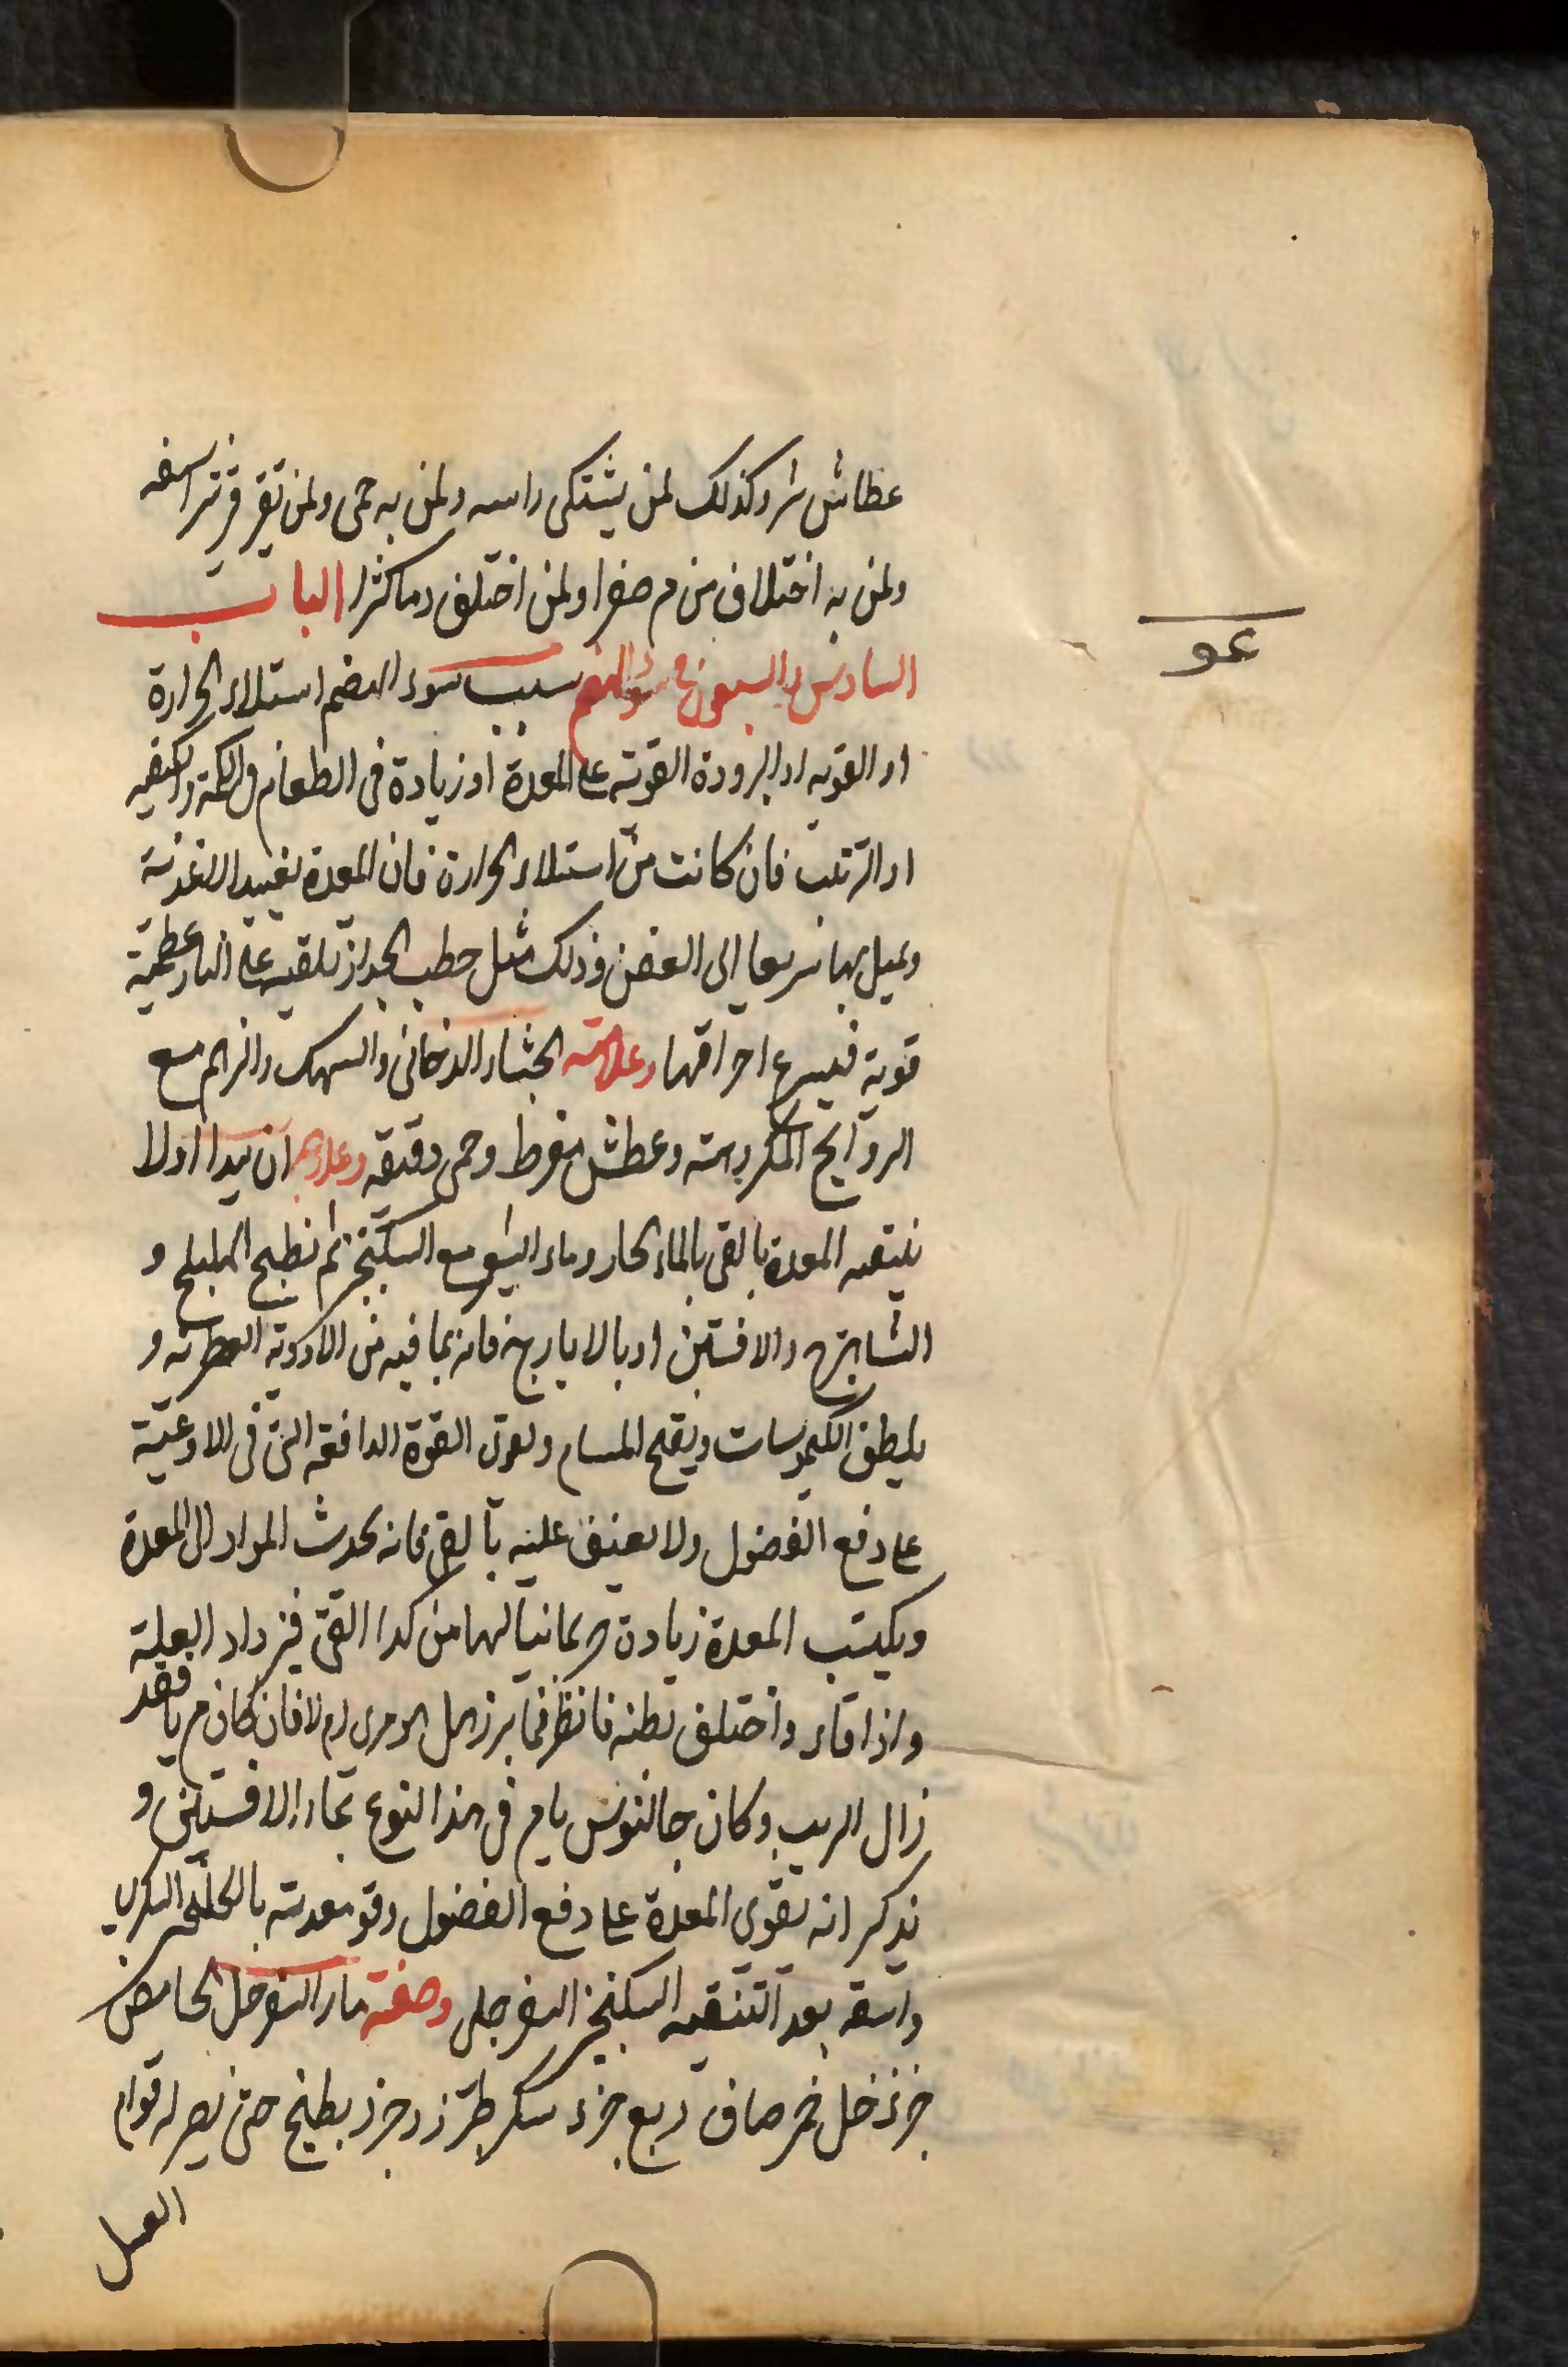 عطاش شر وكذلك لمن يشتكى راسه ولمن به حمى ولمن تقرقر شراسفه
ولمن به اختلاف من م صفرا ولمن اختلف دما كثيرا الباب
عو
السادس والسبعون فى سوء الهضم سبب سوء الهضم استلاء الحرارة
او القويه او البرودة القويه على المعدة او زيادة فى الطعام فى الكمية والكيفيه
او الترتيب فان كانت من استلاء الحرارة فان المعدة تفسد الاغذية
وتميل بها سريعا الى العفن وذلك مثل حطب الجزل تلقيه على النار عظمية
قوية فيسرع احراقها وعلامته الجشاء الدخانى والسهك والزهم مع
الروايح المكروهته وعطش مفرط وحمى دقيقه وعلاجه ان يبدا اولا
بنتقيه المعدة بالقى بالماء الحار وماء الشعير مع السكنجبين ثم بطبيخ الهليلج و
الشاهترج والافسنتين او بالايارج فانه بما فيه من الادوية العطرته و
يلطف الكيموسات ويفتح المسام ويعون القوة الدافعه التى فى الاوعية
على دفع الفضول ولا يعنف عليه بالقى فانه يحدث المواد الى المعدة
ويكتسب المعدة زيادة من كدا القى فيزداد العلة
واذا قاء واختلف بطنه فانظر فيما برز هل هو مرى ام لا فان كان م يا فقد
زال الريب وكان جالنوس يام فى هذا النوع بماء الافسنتين و
يذكر انه يقوى المعدة على دفع الفضول وقو معدته بالجلنجبين السكرى
واسقه بعد التنقيه السكنجبين السفرجلى وصفته ماء السفرجل الحامض
جزء خل خمر صاف ربع جزء سكر طبرزد جزء يطبخ حتى يصير له قوام
العسل